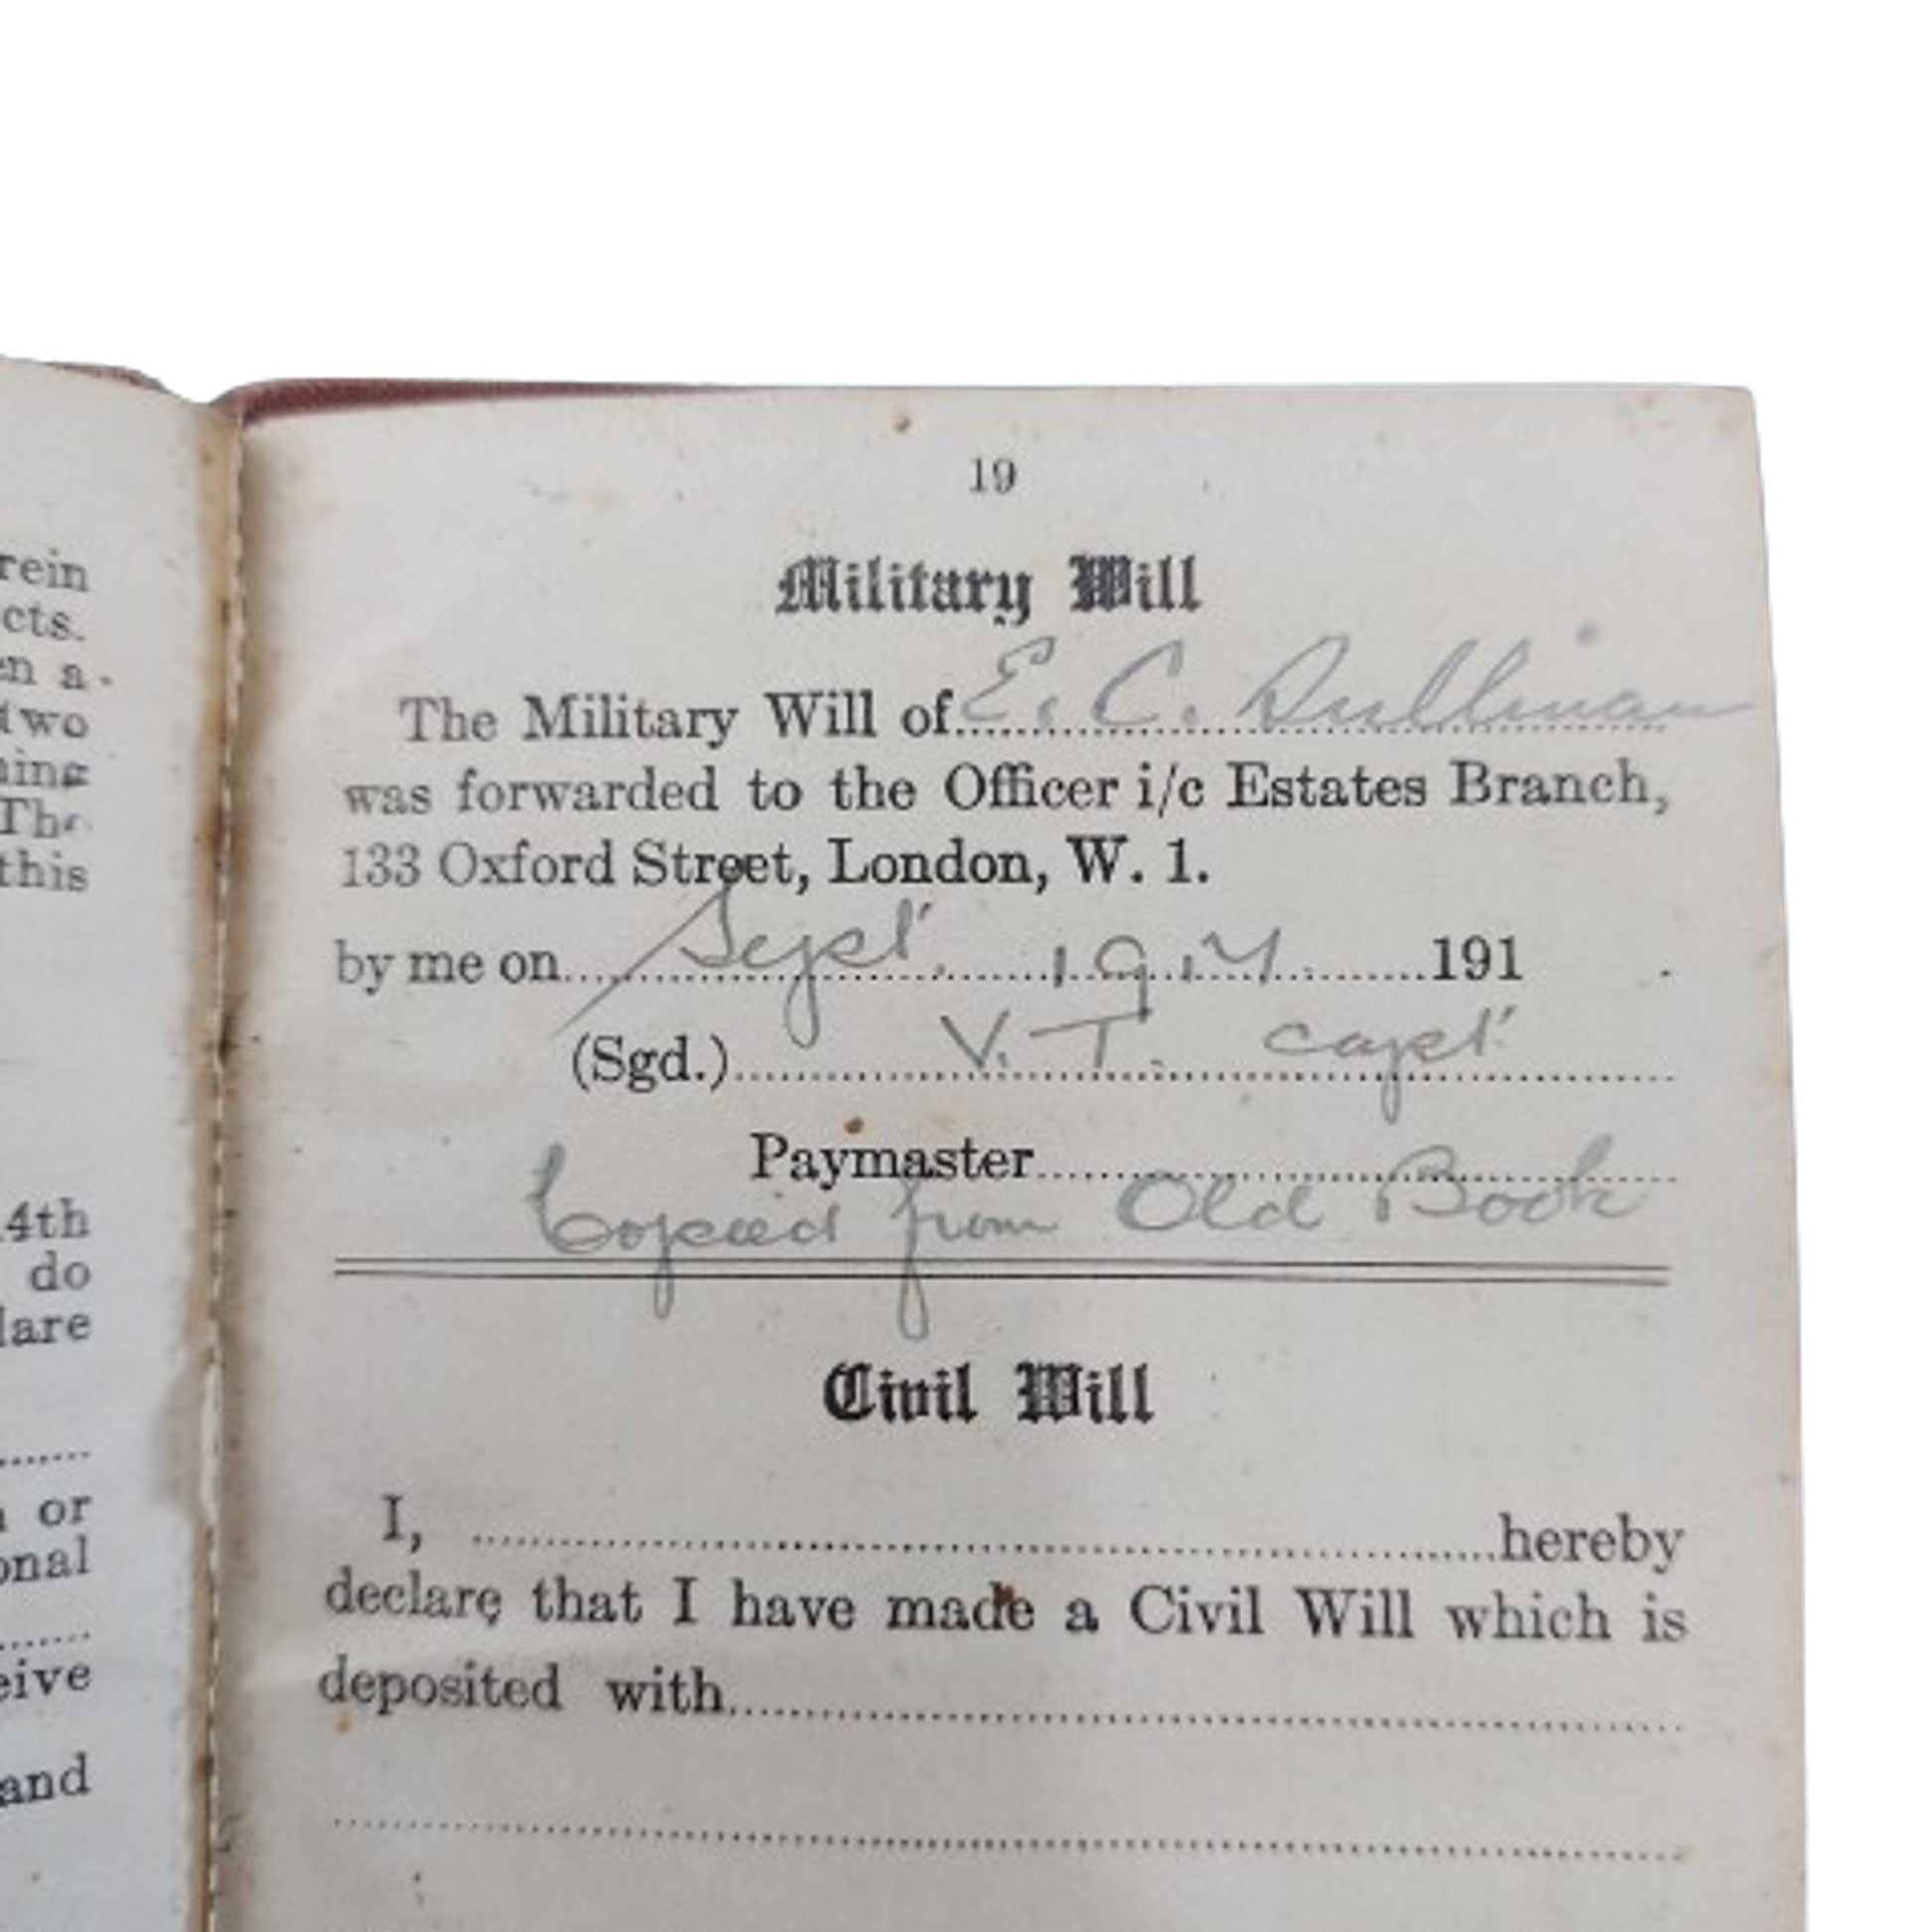 rein
cts.
en a
two
ning
The
this
4th
do
lare
or
onal
eive
and
19
Military Will
The Military Will of E. C. Sullivan
was forwarded to the Officer i/c Estates Branch,
133 Oxford Street, London, W. 1.
by me on Sept. 1917 191
(Sgd.) V. T. Capt.
Paymaster
Copied from Old Book
Civil Will
I, hereby
declare that I have made a Civil Will which is
deposited with